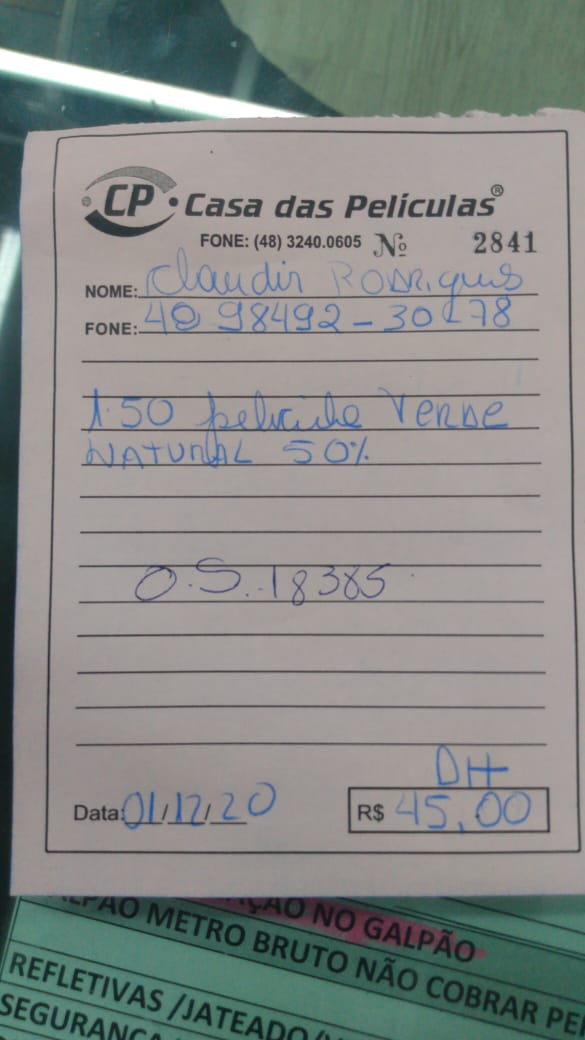 CP Casa das Películas®
FONE: (48) 3240.0605 Nº 2841
NOME: Claudir Rodrigues
FONE: 48 98492-3078
1.50 pelicula Verde
NATURAL 50%
O.S. 18385
DH
Data: 01/12/20 R$ 45,00
AÇÃO NO GALPÃO
METRO BRUTO NÃO COBRAR
REFLETIVAS /JATEADO/
SEGURANÇA